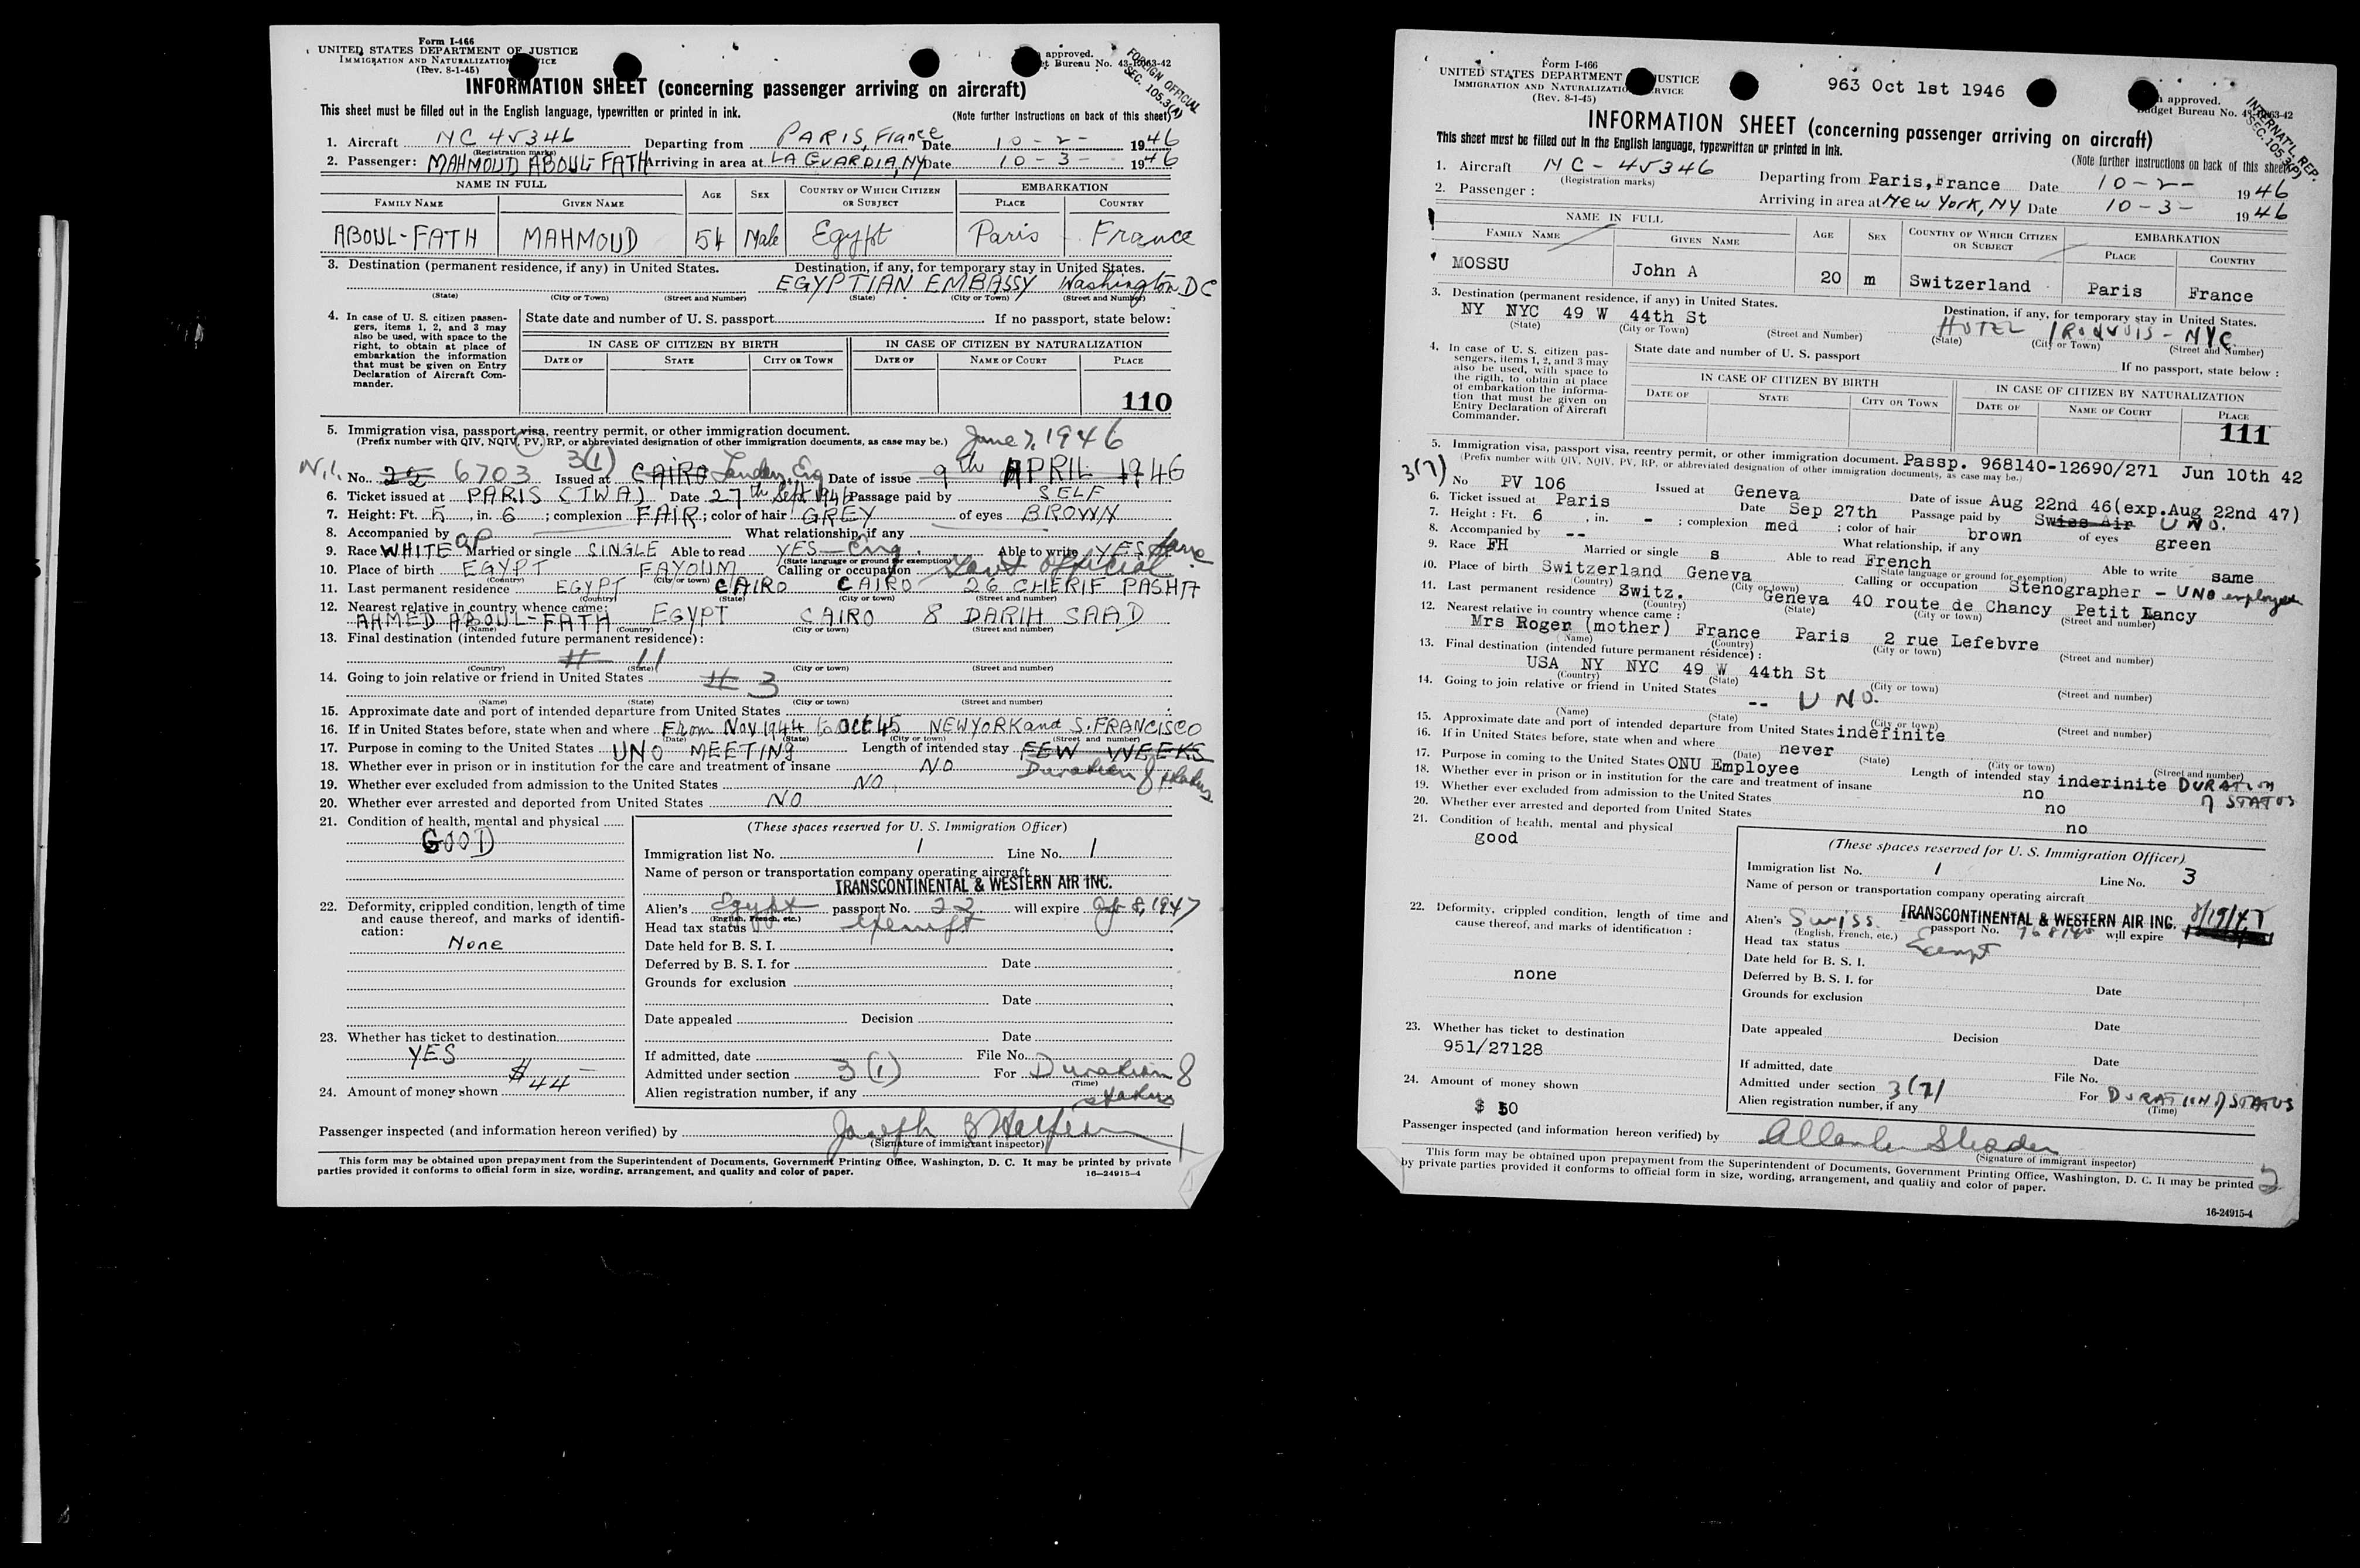 Form I-466
UNITED STATES DEPARTMENT OF JUSTICE
IMMIGRATION AND NATURALIZATION SERVICE
(Rev. 8-1-45)
approved.
et Bureau No. 43-R063-42
FOREIGN OFFICIAL
SEC. 105.3(A)
INFORMATION SHEET (concerning passenger arriving on aircraft)
This sheet must be filled out in the English language, typewritten or printed in ink. (Note further instructions on back of this sheet)
1. Aircraft NC 45346 Departing from PARIS, France Date 10-2- 1946
(Registration marks)
2. Passenger: MAHMOUD ABOUL-FATH Arriving in area at LA GUARDIA, NY Date 10-3- 1946
NAME IN FULL AGE SEX COUNTRY OF WHICH CITIZEN OR SUBJECT EMBARKATION
FAMILY NAME GIVEN NAME PLACE COUNTRY
ABOUL-FATH MAHMOUD 54 Male Egypt Paris France
3. Destination (permanent residence, if any) in United States. Destination, if any, for temporary stay in United States.
EGYPTIAN EMBASSY Washington DC
(State) (City or Town) (Street and Number) (State) (City or Town) (Street and Number)
4. In case of U. S. citizen passengers, items 1, 2, and 3 may also be used, with space to the right, to obtain at place of embarkation the information that must be given on Entry Declaration of Aircraft Commander.
State date and number of U. S. passport If no passport, state below:
IN CASE OF CITIZEN BY BIRTH IN CASE OF CITIZEN BY NATURALIZATION
DATE OF STATE CITY OR TOWN DATE OF NAME OF COURT PLACE
110
5. Immigration visa, passport visa, reentry permit, or other immigration document.
(Prefix number with QIV, NQIV, PV, RP, or abbreviated designation of other immigration documents, as case may be.) June 7, 1946
N.I. No. 22 6703 3(1) Issued at CAIRO London, Eng Date of issue 9th APRIL 1946
6. Ticket issued at PARIS (TWA) Date 27th Sept 1946 Passage paid by SELF
7. Height: Ft. 5, in. 6; complexion FAIR; color of hair GREY of eyes BROWN
8. Accompanied by What relationship, if any
9. Race WHITE Married or single SINGLE Able to read YES - Eng. Able to write YES same
(State language or ground for exemption)
10. Place of birth EGYPT FAYOUM Calling or occupation Govt Official
(Country) (City or town)
11. Last permanent residence EGYPT CAIRO CAIRO 26 CHERIF PASHA
(Country) (State) (City or town) (Street and number)
12. Nearest relative in country whence came:
AHMED ABOUL-FATH EGYPT CAIRO 8 DARIH SAAD
(Name) (Country) (City or town) (Street and number)
13. Final destination (intended future permanent residence):
# 11
(Country) (State) (City or town) (Street and number)
14. Going to join relative or friend in United States # 3
(Name) (State) (City or town) (Street and number)
15. Approximate date and port of intended departure from United States
16. If in United States before, state when and where From Nov 1944 to Oct 45 NEW YORK and S. FRANCISCO
(Date) (State) (City or town) (Street and number)
17. Purpose in coming to the United States UNO MEETING Length of intended stay FEW WEEKS
18. Whether ever in prison or in institution for the care and treatment of insane NO Duration of status
19. Whether ever excluded from admission to the United States NO
20. Whether ever arrested and deported from United States NO
21. Condition of health, mental and physical
GOOD
22. Deformity, crippled condition, length of time and cause thereof, and marks of identification:
None
23. Whether has ticket to destination
YES
24. Amount of money shown $44-
(These spaces reserved for U. S. Immigration Officer)
Immigration list No. 1 Line No. 1
Name of person or transportation company operating aircraft
TRANSCONTINENTAL & WESTERN AIR INC.
Alien's Egypt passport No. 22 will expire 8, 1947
(English, French, etc.)
Head tax status exempt
Date held for B. S. I.
Deferred by B. S. I. for Date
Grounds for exclusion
Date
Date appealed Decision
Date
If admitted, date File No.
Admitted under section 3(1) For Duration of status
(Time)
Alien registration number, if any
Passenger inspected (and information hereon verified) by Joseph
(Signature of immigrant inspector)
This form may be obtained upon prepayment from the Superintendent of Documents, Government Printing Office, Washington, D. C. It may be printed by private
parties provided it conforms to official form in size, wording, arrangement, and quality and color of paper. 16-24915-4
Form I-466
UNITED STATES DEPARTMENT OF JUSTICE
IMMIGRATION AND NATURALIZATION SERVICE
(Rev. 8-1-45)
963 Oct 1st 1946
approved.
Budget Bureau No. 43-R063-42
INTERNAT'L REP.
SEC. 105.3(P)
INFORMATION SHEET (concerning passenger arriving on aircraft)
This sheet must be filled out in the English language, typewritten or printed in ink. (Note further instructions on back of this sheet)
1. Aircraft NC-45346 Departing from Paris, France Date 10-2- 1946
(Registration marks)
2. Passenger: Arriving in area at New York, NY Date 10-3- 1946
NAME IN FULL AGE SEX COUNTRY OF WHICH CITIZEN OR SUBJECT EMBARKATION
FAMILY NAME GIVEN NAME PLACE COUNTRY
MOSSU John A 20 m Switzerland Paris France
3. Destination (permanent residence, if any) in United States. Destination, if any, for temporary stay in United States.
NY NYC 49 W 44th St HOTEL IROQUOIS - NYC
(State) (City or Town) (Street and Number) (State) (City or Town) (Street and Number)
4. In case of U. S. citizen passengers, items 1, 2, and 3 may also be used, with space to the rigth, to obtain at place of embarkation the information that must be given on Entry Declaration of Aircraft Commander.
State date and number of U. S. passport If no passport, state below :
IN CASE OF CITIZEN BY BIRTH IN CASE OF CITIZEN BY NATURALIZATION
DATE OF STATE CITY OR TOWN DATE OF NAME OF COURT PLACE
111
5. Immigration visa, passport visa, reentry permit, or other immigration document. Passp. 968140-12690/271 Jun 10th 42
(Prefix number with QIV, NQIV, PV, RP, or abbreviated designation of other immigration documents, as case may be.)
3(7) No PV 106 Issued at Geneva Date of issue Aug 22nd 46(exp.Aug 22nd 47)
6. Ticket issued at Paris Date Sep 27th Passage paid by Swiss Air UNO.
7. Height : Ft. 6, in. - ; complexion med ; color of hair brown of eyes green
8. Accompanied by -- What relationship, if any
9. Race FH Married or single s Able to read French Able to write same
(State language or ground for exemption)
10. Place of birth Switzerland Geneva Calling or occupation Stenographer - UNO employee
(Country) (City or town)
11. Last permanent residence Switz. Geneva 40 route de Chancy Petit Lancy
(Country) (State) (City or town) (Street and number)
12. Nearest relative in country whence came :
Mrs Roger (mother) France Paris 2 rue Lefebvre
(Name) (Country) (City or town) (Street and number)
13. Final destination (intended future permanent résidence) :
USA NY NYC 49 W 44th St
(Country) (State) (City or town) (Street and number)
14. Going to join relative or friend in United States -- UNO.
(Name) (State) (City or town) (Street and number)
15. Approximate date and port of intended departure from United States indefinite
16. If in United States before, state when and where never
(Date) (State) (City or town) (Street and number)
17. Purpose in coming to the United States ONU Employee Length of intended stay inderinite DURATION OF STATUS
18. Whether ever in prison or in institution for the care and treatment of insane no
19. Whether ever excluded from admission to the United States no
20. Whether ever arrested and deported from United States no
21. Condition of health, mental and physical
good
22. Deformity, crippled condition, length of time and cause thereof, and marks of identification :
none
23. Whether has ticket to destination
951/27128
24. Amount of money shown
$ 50
(These spaces reserved for U. S. Immigration Officer)
Immigration list No. 1 Line No. 3
Name of person or transportation company operating aircraft
TRANSCONTINENTAL & WESTERN AIR INC.
Alien's Swiss passport No. 968140 will expire 8/19/47
(English, French, etc.)
Head tax status Exempt
Date held for B. S. I.
Deferred by B. S. I. for Date
Grounds for exclusion
Date
Date appealed Decision
Date
If admitted, date File No.
Admitted under section 3(7) For DURATION OF STATUS
(Time)
Alien registration number, if any
Passenger inspected (and information hereon verified) by
(Signature of immigrant inspector)
This form may be obtained upon prepayment from the Superintendent of Documents, Government Printing Office, Washington, D. C. It may be printed
by private parties provided it conforms to official form in size, wording, arrangement, and quality and color of paper.
16-24915-4